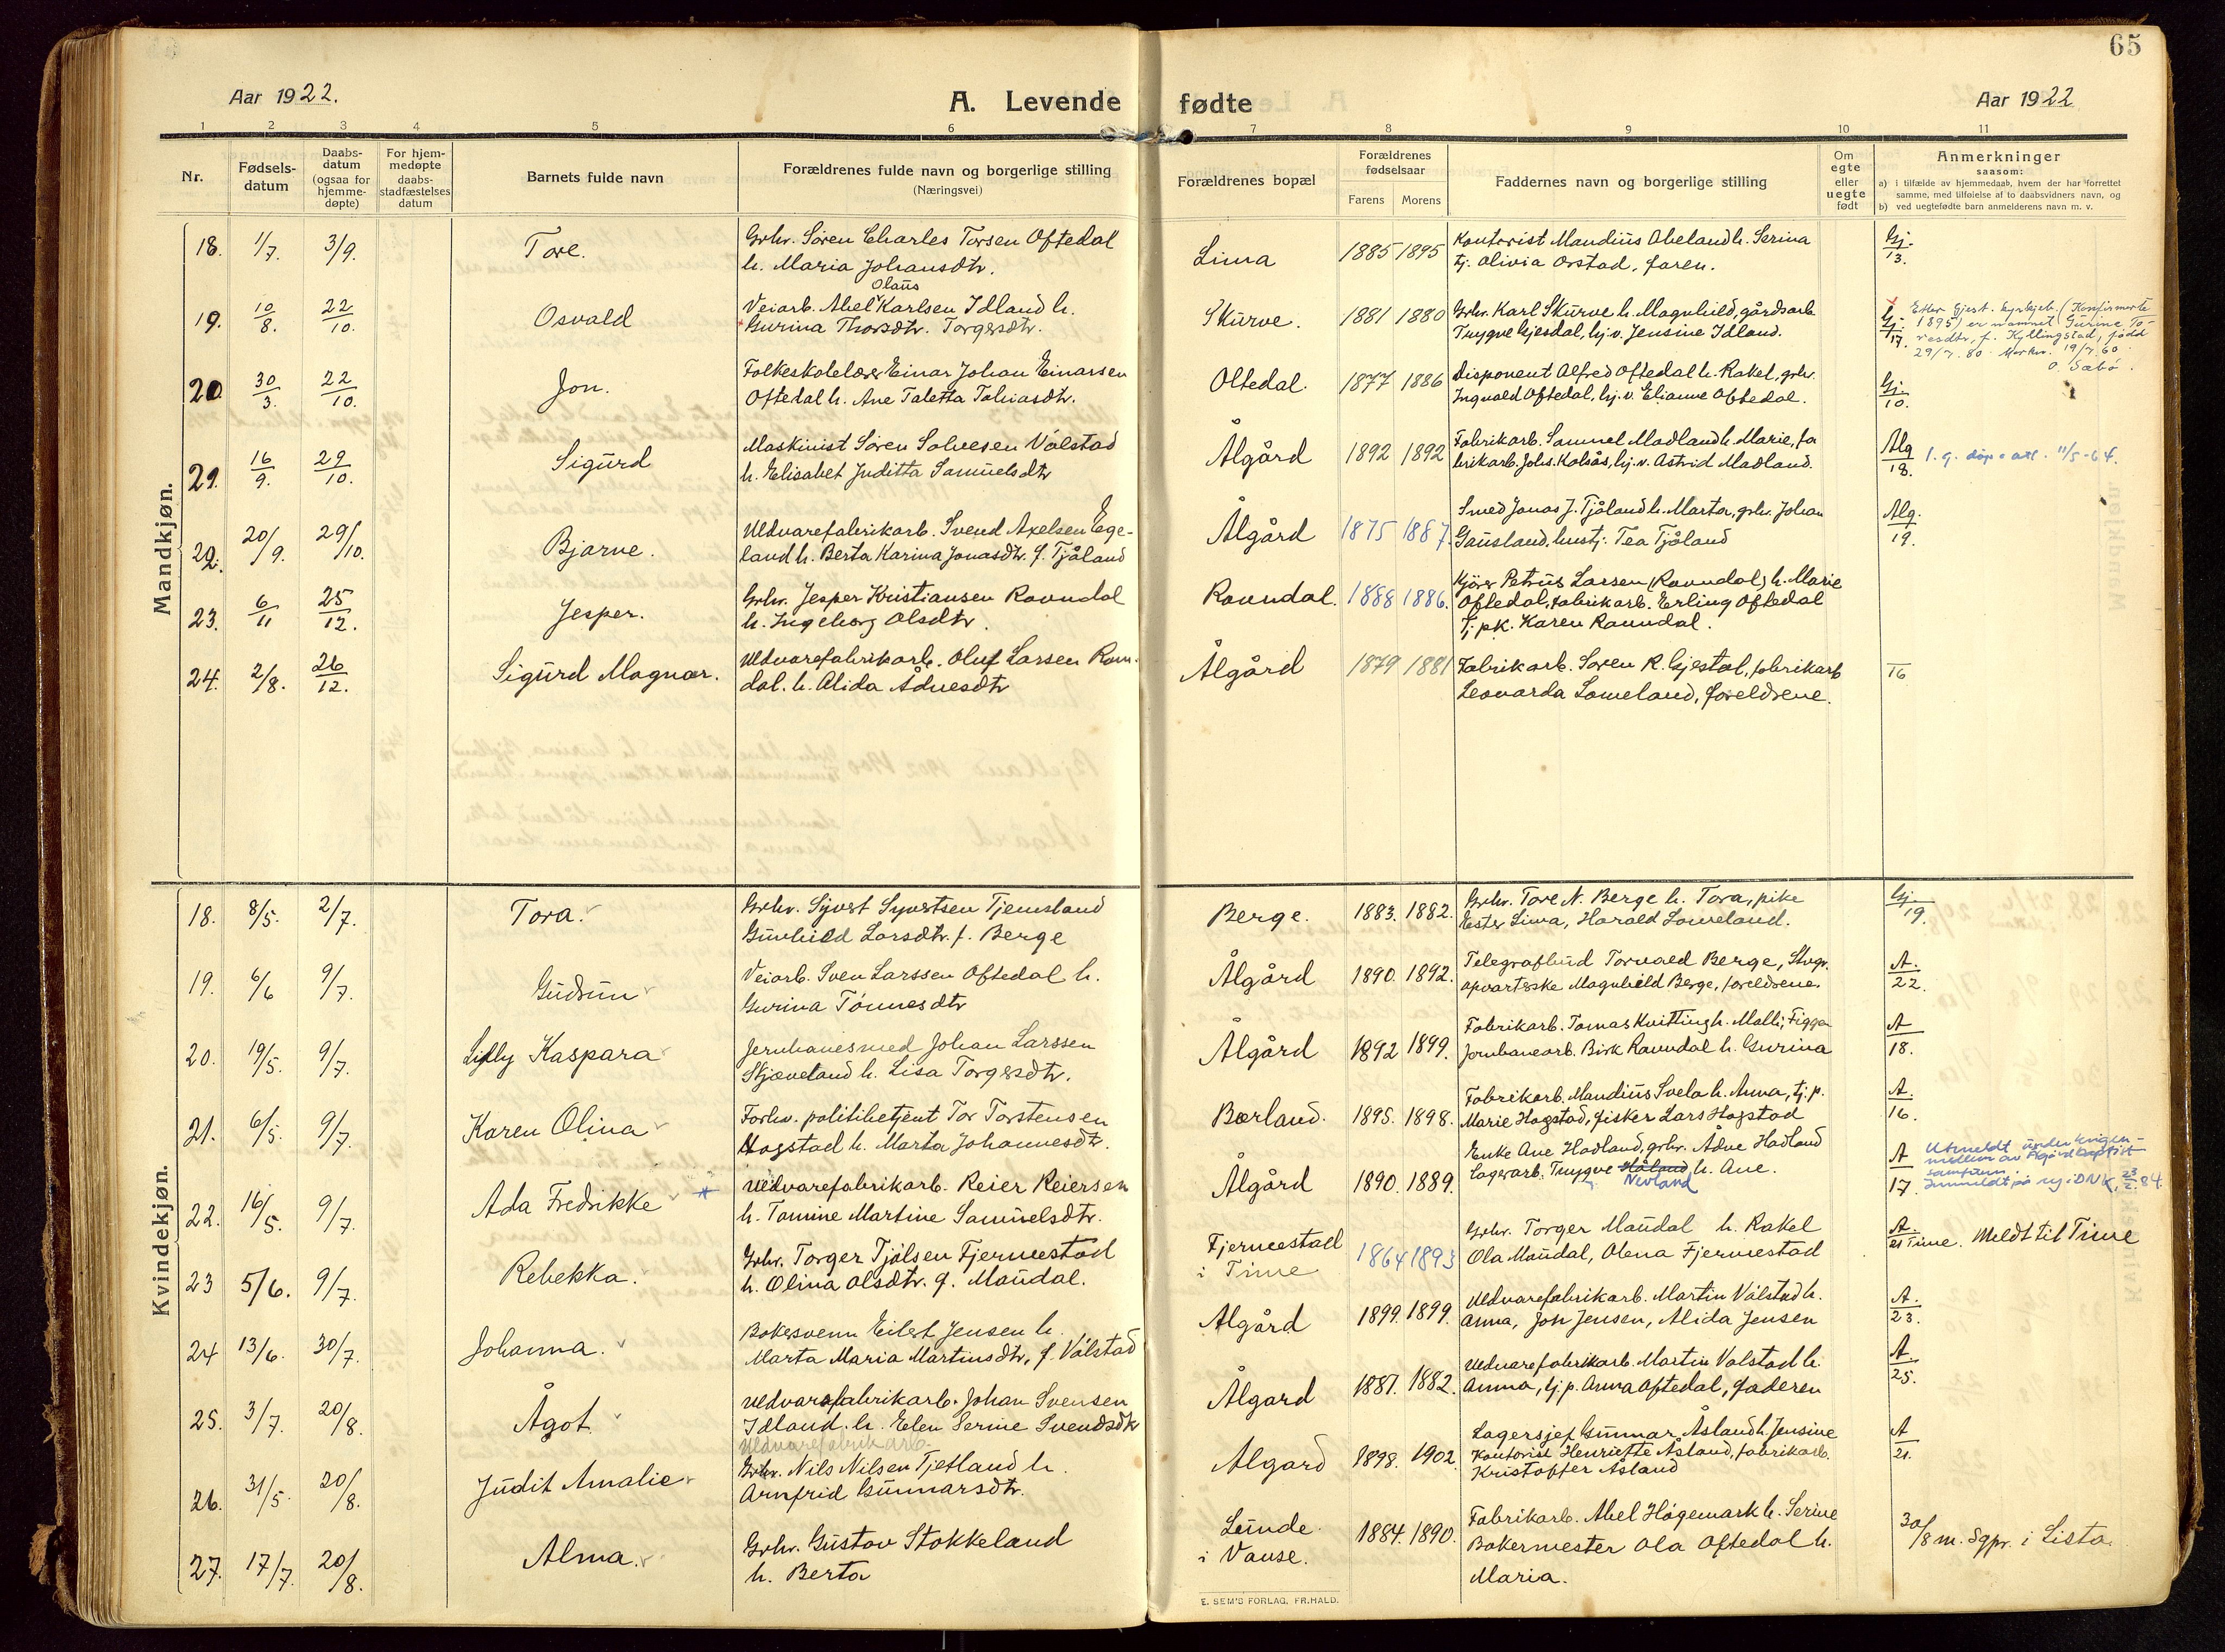 65
Aar 1922.
A. Levende fødte
Aar 1922
1 2 3 4 5 6 7 8 9 10 11
Nr.
Fødsels-
datum
Daabs-
datum
(ogsaa for
hjemme-
døpte)
For hjem-
medøpte
daabs-
stadfæstelses
datum
Barnets fulde navn
Forældrenes fulde navn og borgerlige stilling
(Næringsvei)
Forældrenes bopæl
Forældrenes
fødselsaar
Farens Morens
Faddernes navn og borgerlige stilling
Om
egte
eller
uegte
født
Anmerkninger
saasom:
a) i tilfælde av hjemmedaab, hvem der har forrettet
samme, med tilføielse af to daabsvidners navn, og
b) ved uegtefødte barn anmelderens navn m. v.
Mandkjøn.
18. 1/7. 3/9. Tore.
Grhr. Sören Charles Torsen Oftedal
h. Maria Johansdtr.
Lima 1885 1895
Kontorist Mandius Abeland h. Serina
tj. Olivia Orstad, faren.
Gj.
13.
19. 10/8. 22/10. Osvald
Olaus
Veiarb. Abel Karlsen Idland h.
Gurina Thorsdtr. Torgersdtr.
Skurve. 1881 1880
Grhr. Karl Skurve h. Magnhild, gårdsarb.
Trygve Gjesdal, hj.v. Jensine Idland.
Gj.
17.
Etter Gjest. kyrkjeb. (Konfirmerte
1895) er namnet Gurine To-
resdtr, f. Kyllingstad, född
29/7. 80. Merkn. 19/7. 60
O. Sæbö.
20 30/3. 22/10. Jon.
Folkeskolelærer Einar Johan Einarsen
Oftedal h. Ane Taletta Tobiasdtr.
Oltedal. 1877 1886
Disponent Alfred Oftedal h. Rakel, grhr.
Ingvald Oftedal, hj.v. Elianne Oftedal.
Gj.
10.
21. 16/9. 29/10. Sigurd
Maskinist Sören Solvesen Válstad
h. Elisabet Juditta Samuelsdtr
Ålgård 1892 1892
Fabrikarb. Samuel Madland h. Marie, fa
brikarb. Johs. Kolsås, hj.v. Astrid Madland.
Alg
18.
1. g. döpeatt. 11/5-64.
22. 20/9. 29/10. Bjarne.
Uldvarefabrikarb. Svend Axelsen Ege-
land h. Berta Karina Jonasdtr. f. Tjåland
Ålgård 1875 1887.
Smed Jonas J. Tjåland h. Marta, grhr. Johan
Gausland, hustj. Tea Tjåland
Alg.
19.
23. 6/11 25/12. Jesper.
Grhr. Jesper Kristiansen Ravndal
h. Ingeborg Olsdtr.
Ravndal. 1888 1886.
Kjörer Petrus Larsen (Ravndal) h. Marie
Oftedal, fabrikarb. Erling Oftedal
tj. pk. Karen Ravndal.
24. 2/8. 26/12. Sigurd Magnar.
Uldvarefabrikarb. Oluf Larsen Ravn-
dal. h. Alida Ådnesdtr
Ålgård 1879 1881
Fabrikarb. Sören R. Gjestal, fabrikarb
Leonarda Lomeland, foreldrene.
16
Kvindekjøn.
18. 8/5. 2/7. Tora.
Grhr. Syvert Syvertsen Tjemsland
Gunhild Larsdtr. f. Berge
Berge. 1883. 1882.
Grhr. Tore N. Berge h. Tora, pike
Ester Lima, Harald Lomeland.
Gj.
19.
19. 6/6 9/7. Gudrun
Veiarb. Sven Larssen Oftedal h.
Gurina Tönnesdtr
Ålgård 1890. 1892.
Telegrafbud Torvald Berge, Stvgr.
opvarterske Magnhild Berge, foreldrene.
A.
22.
20. 19/5. 9/7. Lilly Kaspara
Jernbanesmed Johan Larssen
Skjæveland h. Lisa Torgersdtr.
Ålgård 1892 1899.
Fabrikarb. Tomas Kvitting h. Malli, Figgen
Jernbanearb. Birk Ravndal h. Gurina
A
18.
21. 6/5. 9/7. Karen Olina
Forhv. politibetjent Tor Torstensen
Hogstad h. Marta Johannesdtr.
Bærland. 1895. 1898.
Fabrikarb. Mandius Svela h. Anna, tj. p.
Marie Hogstad, fisker Lars Hogstad
A.
16.
22. 16/5. 9/7. Ada Fredrikke
Uldvarefabrikarb. Reier Reiersen
h. Tomine Martine Samuelsdtr.
Ålgård 1890. 1889.
Enke Ane Hadland, grhr. Ådne Hadland
Lagerarb. Trygve Håland h. Ane.
Nevland
A
17.
Utmeldt under krigen -
medlem av Ålgård Baptist-
samfunn.
Innmeldt på ny i DNK, 23/2. 84.
23 5/6. 9/7. Rebekka.
Grhr. Torger Tjålsen Fjermestad
h. Olina Olsdtr. f. Maudal.
Fjermestad
i Time 1864 1893
Grhr. Torger Maudal h. Rakel
Ola Maudal, Olena Fjermestad
A.
21 Time. Meldt til Time
24 13/6. 30/7. Johanna.
Bakersvenn Eilert Jensen h.
Marta Maria Martinsdtr, f. Válstad
Ålgård 1899. 1899.
Uldvarefabrikarb. Martin Válstad h.
Anna, Jon Jensen, Alida Jensen
A.
23.
25. 3/7. 20/8. Ågot.
Uldvarefabrikarb. Johan Svensen
Idland. h. Elen Serine Svendsdtr
Ålgard 1881. 1882.
Uldvarefabrikarb. Martin Valstad h.
Anna, tj. p. Anna Oftedal, faderen
A
25.
26. 31/5. 20/8. Judit Amalie
Uldvarefabrikarb.
Grhr. Nils Nilsen Tjetland h.
Arnfrid Gunnarsdtr.
Ålgard 1898. 1902.
Lagersjef Gunnar Åsland h. Jensine
Kontorist Henriette Åsland, fabrikarb.
Kristoffer Åsland
A
21.
27. 17/7. 20/8. Alma.
Grhr. Gustav Stokkeland
h. Berta
Lunde
i Vanse. 1884. 1890.
Fabrikarb. Abel Högemark h. Serine
Bakermester Ola Oftedal h.
Maria.
30/8 m. Sgpr. i Lista.
E. SEM'S FORLAG, FR.HALD.